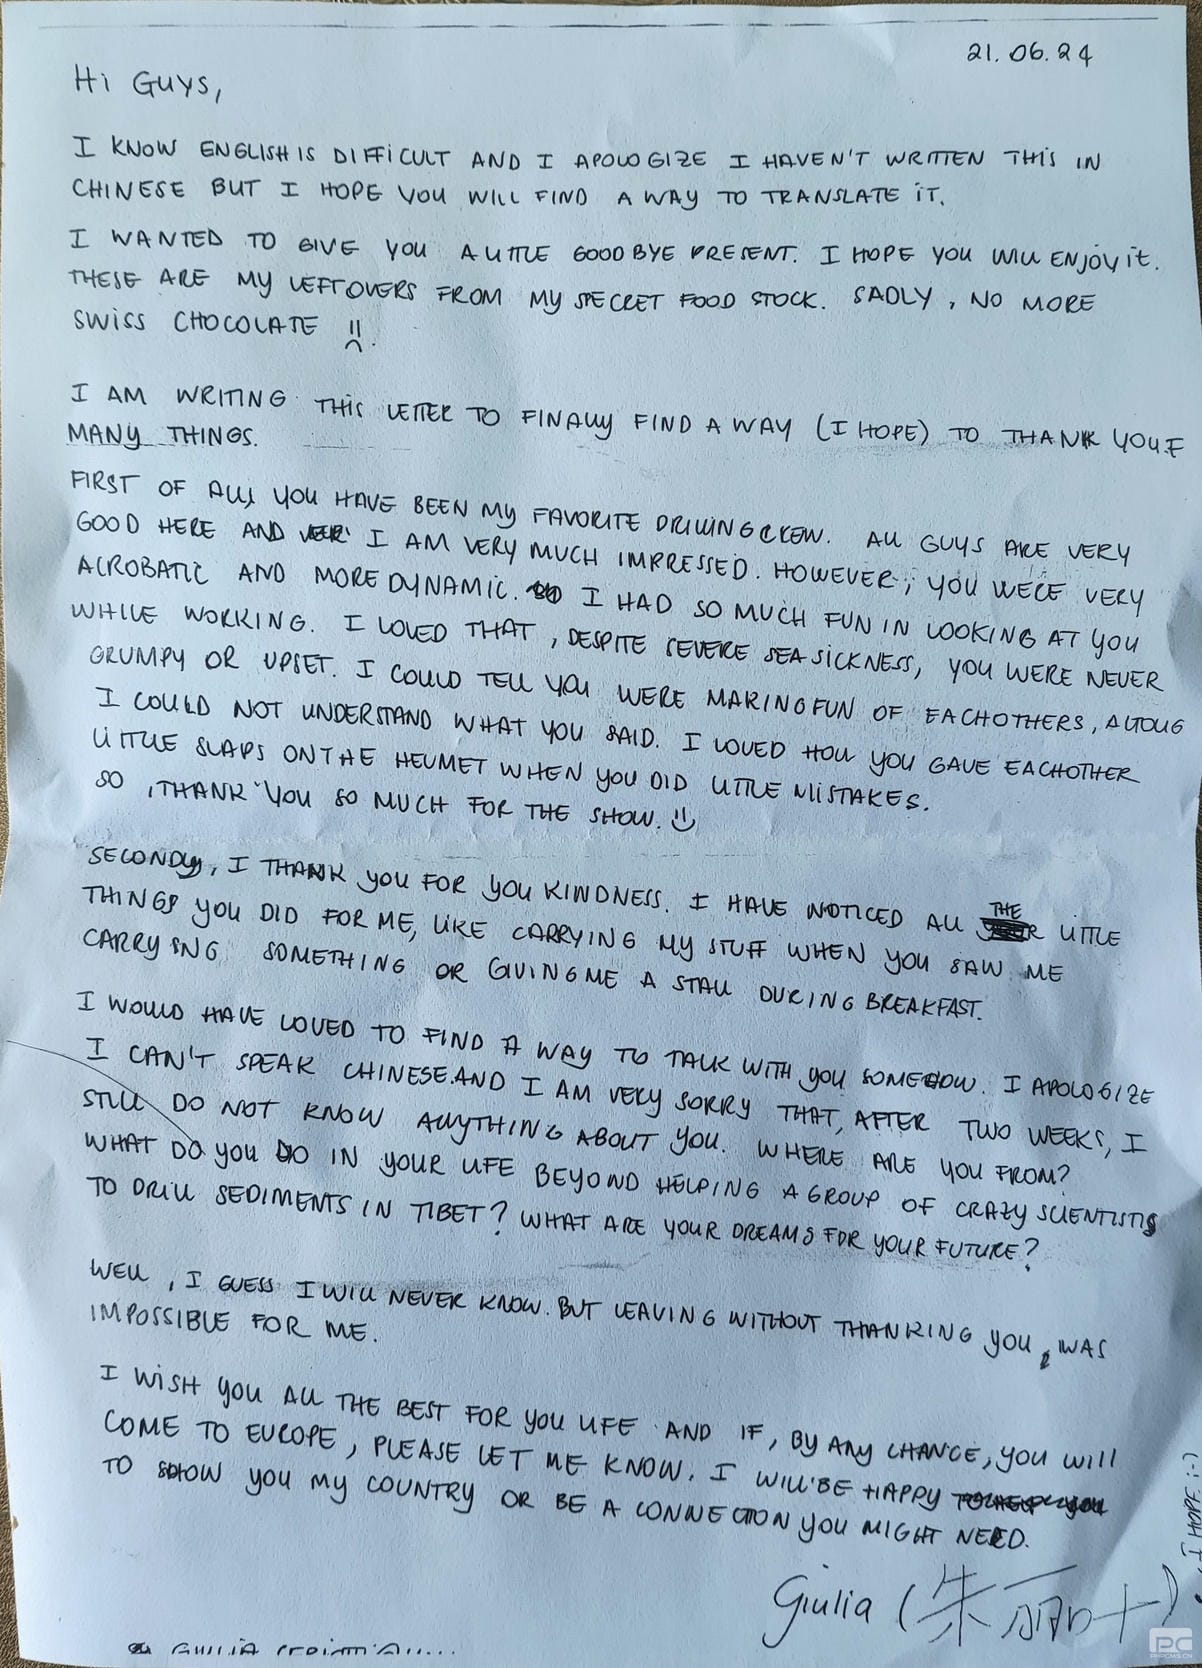 21.06.24
Hi GUYS,
I KNOW ENGLISH IS DIFFICULT AND I APOLOGIZE I HAVEN'T WRITTEN THIS IN
CHINESE BUT I HOPE YOU WILL FIND A WAY TO TRANSLATE IT.
I WANTED TO GIVE YOU A LITTLE GOODBYE PRESENT. I HOPE YOU WILL ENJOY it.
THESE ARE MY LEFTOVERS FROM MY SECRET FOOD STOCK. SADLY, NO MORE
SWISS CHOCOLATE
I AM WRITING THIS LETTER TO FINALLY FIND A WAY (I HOPE) TO THANK YOU.F
MANY THINGS.
FIRST OF ALL, YOU HAVE BEEN MY FAVORITE DRILLING CREW. ALL GUYS ARE VERY
GOOD HERE AND I AM VERY MUCH IMPRESSED. HOWEVER, YOU WERE VERY
ACROBATIC AND MORE DYNAMIC. I HAD SO MUCH FUN IN LOOKING AT YOU
WHILE WORKING. I LOVED THAT, DESPITE SEVERE SEASICKNESS, YOU WERE NEVER
GRUMPY OR UPSET. I COULD TELL YOU WERE MAKING FUN OF EACHOTHERS, ALTOUG
I COULD NOT UNDERSTAND WHAT YOU SAID. I LOVED HOW YOU GAVE EACHOTHER
LITTLE SLAPS ON THE HELMET WHEN YOU DID LITTLE MISTAKES.
SO, THANK YOU SO MUCH FOR THE SHOW. :)
SECONDLY, I THANK YOU FOR YOU KINDNESS. I HAVE NOTICED ALL THE LITTLE
THINGS YOU DID FOR ME, LIKE CARRYING MY STUFF WHEN YOU SAW ME
CARRYING SOMETHING OR GIVING ME A STALL DURING BREAKFAST.
I WOULD HAVE LOVED TO FIND A WAY TO TALK WITH YOU SOMEHOW. I APOLOGIZE
I CAN'T SPEAK CHINESE.AND I AM VERY SORRY THAT, AFTER TWO WEEKS, I
STILL DO NOT KNOW ANYTHING ABOUT YOU. WHERE ARE YOU FROM?
WHAT DO YOU DO IN YOUR LIFE BEYOND HELPING A GROUP OF CRAZY SCIENTISTS
TO DRILL SEDIMENTS IN TIBET? WHAT ARE YOUR DREAMS FOR YOUR FUTURE?
WELL, I GUESS I WILL NEVER KNOW. BUT LEAVING WITHOUT THANKING YOU, WAS
IMPOSSIBLE FOR ME.
I WISH YOU ALL THE BEST FOR YOU LIFE AND IF, BY ANY CHANCE, YOU WILL
COME TO EUROPE, PLEASE LET ME KNOW. I WILL BE HAPPY
TO SHOW YOU MY COUNTRY OR BE A CONNECTION YOU MIGHT NEED.
Giulia (朱丽叶)
I HOPE :-)
GIULIA
PHPCMS.CN